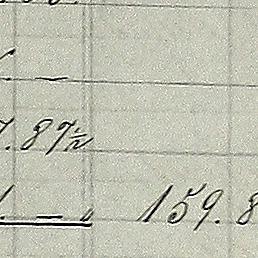 . —
7.87½
. — " 159.8